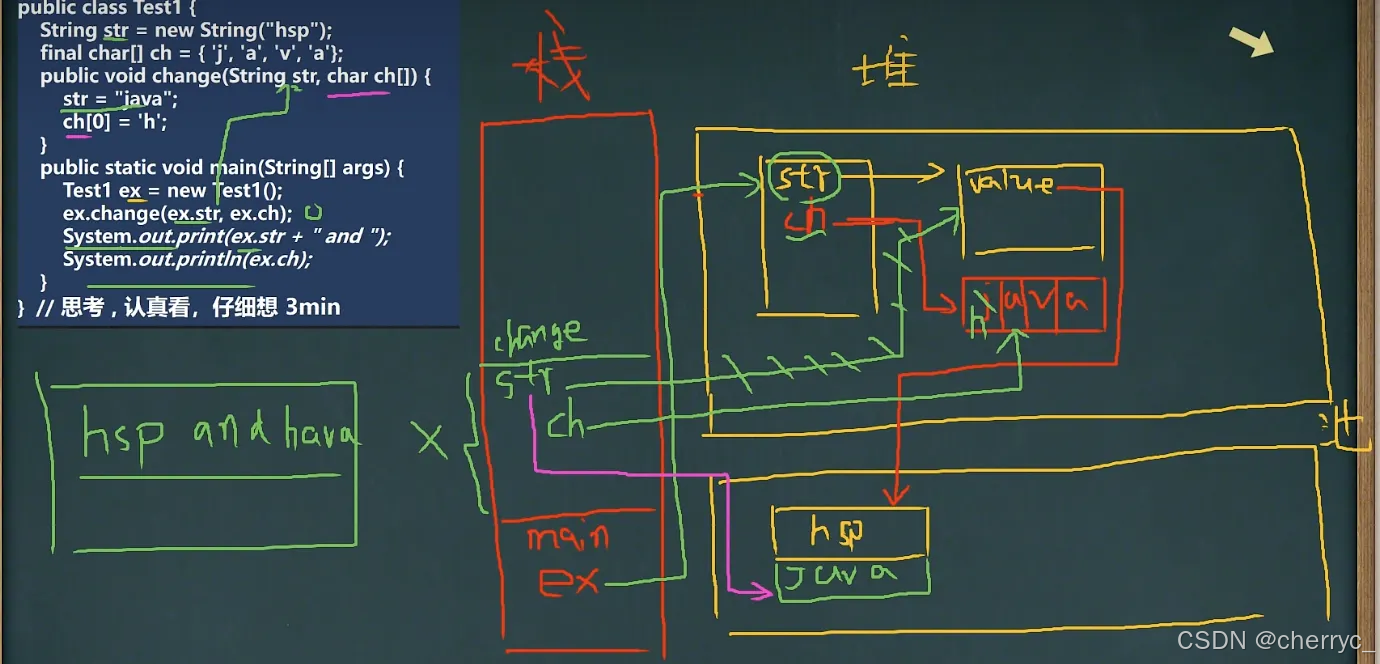 public class Test1 {
String str = new String("hsp");
final char[] ch = { 'j', 'a', 'v', 'a'};
public void change(String str, char ch[]) {
str = "java";
ch[0] = 'h';
}
public static void main(String[] args) {
Test1 ex = new Test1();
ex.change(ex.str, ex.ch);
System.out.print(ex.str + " and ");
System.out.println(ex.ch);
}
} // 思考 , 认真看，仔细想 3min
栈
堆
str
value
ch
j a v a
h
change
str
ch
hsp and hava
X
main
ex
hsp
java
CSDN @cherryc_